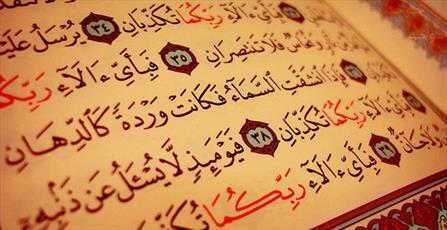 فَبِأَيِّ ءَالَآءِ رَبِّكُمَا تُكَذِّبَانِ ٣٤ يُرْسَلُ عَلَيْ
وَنُحَاسٌ فَلَا تَنتَصِرَانِ ٣٥ فَبِأَيِّ ءَالَآءِ رَبِّكُمَا
فَإِذَا ٱنشَقَّتِ ٱلسَّمَآءُ فَكَانَتْ وَرْدَةً كَٱلدِّهَانِ
ءَالَآءِ رَبِّكُمَا تُكَذِّبَانِ ٣٨ فَيَوْمَئِذٍ لَّا يُسْـَٔلُ عَن ذَنۢبِهِۦٓ
وَلَا جَآنٌّ ٣٩ فَبِأَيِّ ءَالَآءِ رَبِّكُمَا تُكَذِّ